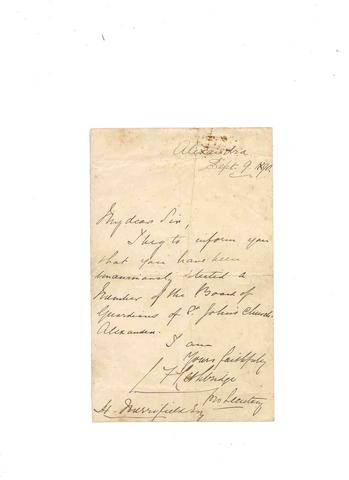 Alexandra
Sept. 9 1890.
My dear Sir,
I beg to inform you
that you have been
unanimously elected a
Member of the Board of
Guardians of St. John's Church
Alexandra.
I am
Yours faithfully
Secretary
H. Merrifield Esq